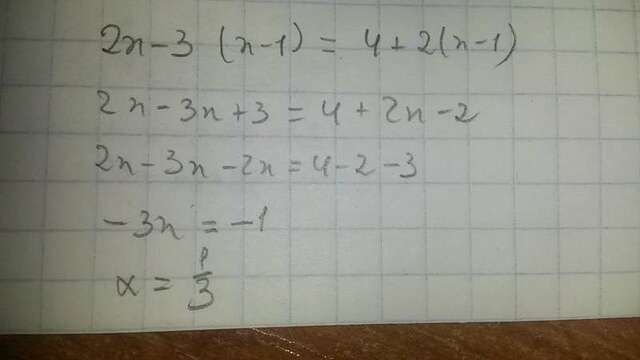 2x-3 (x-1) = 4+2(x-1)
2x-3x+3=4+2x-2
2x-3x-2x=4-2-3
-3x=-1
x=1/3